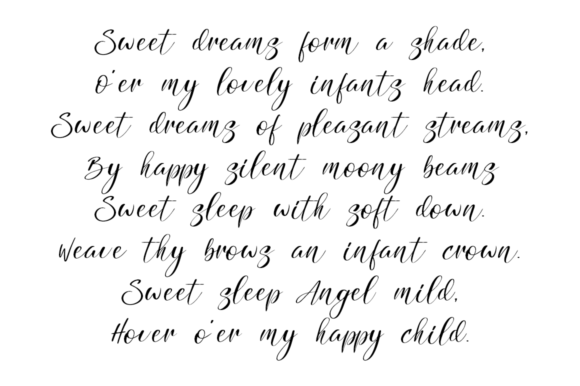 Sweet dreams form a shade,
O'er my lovely infants head.
Sweet dreams of pleasant streams,
By happy silent moony beams
Sweet sleep with soft down.
Weave thy brows an infant crown.
Sweet sleep Angel mild,
Hover o'er my happy child.